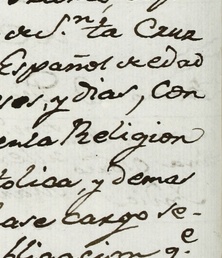 de S.ⁿᵗᵃ Cruz
Español de edad
ses, y dias, con
Religion
tolica, y demas
ase cargo se=
bligacion q.ᵉ